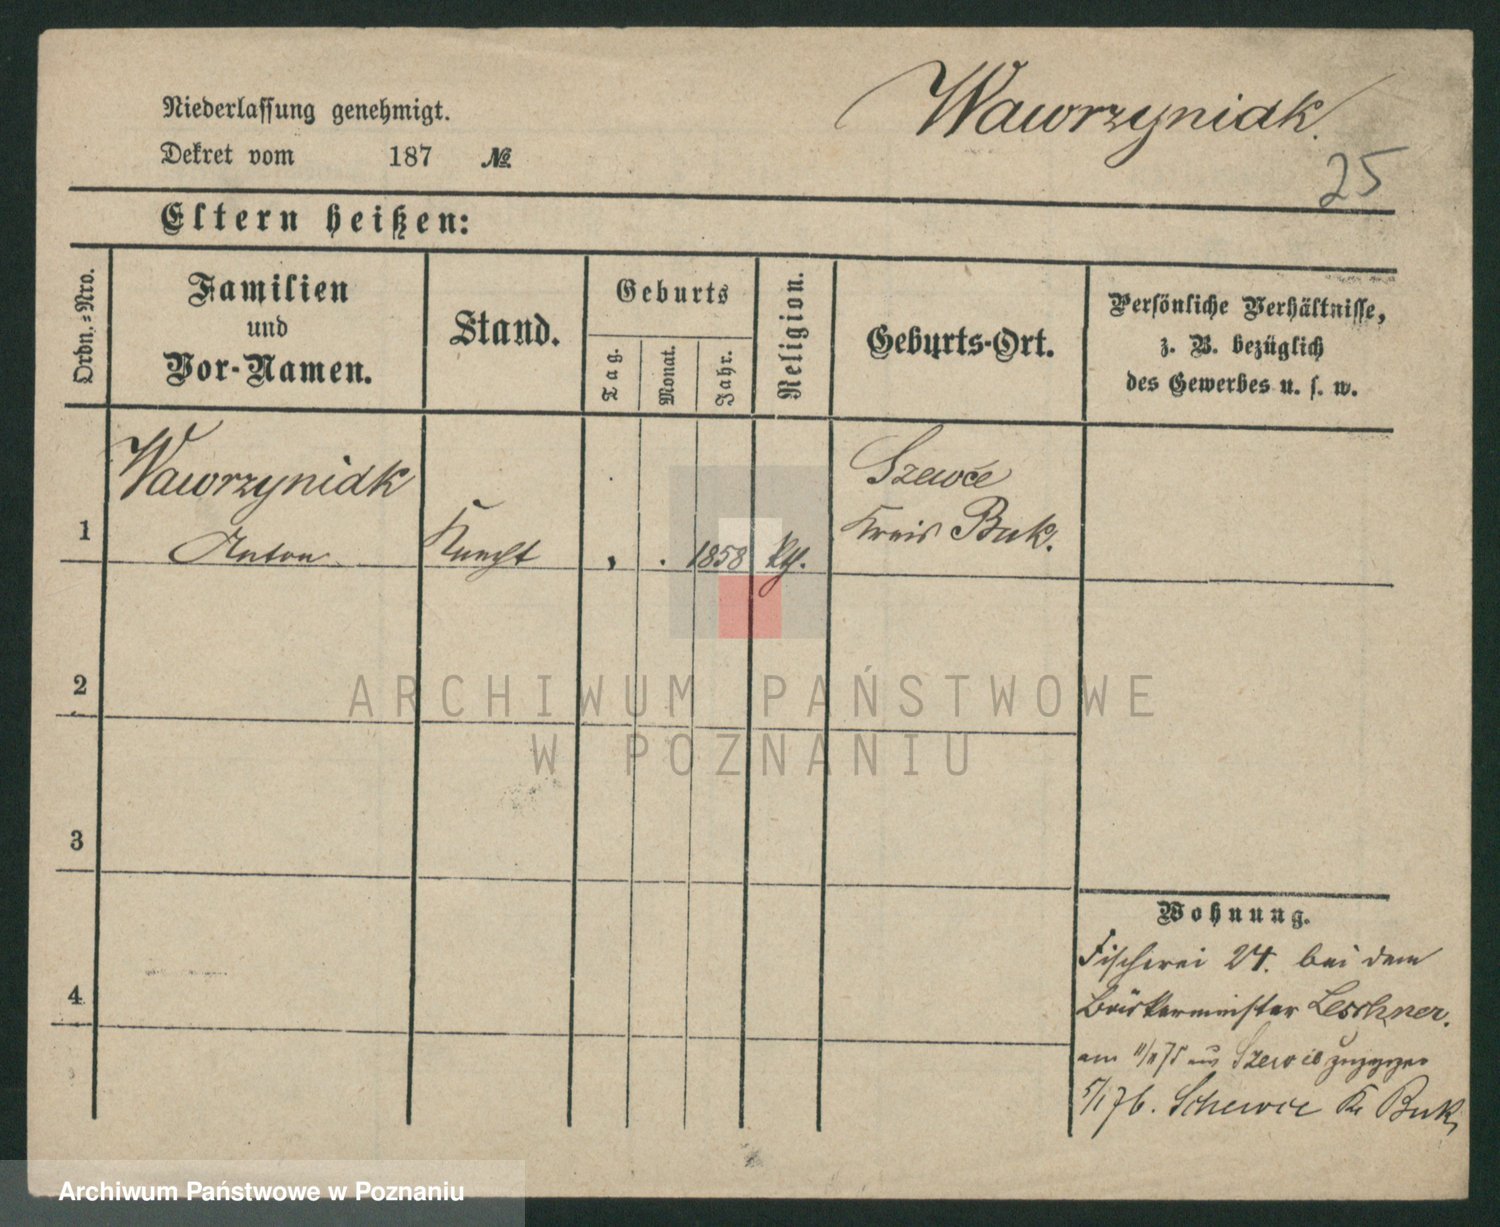 Niederlassung genehmigt.
Dekret vom 187 №
Wawrzyniak.
25
Eltern heißen:
Ordn.-Nro.
Familien
und
Vor-Namen.
Stand.
Geburts
Tag.
Monat.
Jahr.
Religion.
Geburts-Ort.
Persönliche Verhältnisse,
z. B. bezüglich
des Gewerbes u. s. w.
1
Wawrzyniak
Anton
Knecht
1858
kth.
Szewce
Kreis Buk.
2
3
4
Wohnung.
Fischerei 24. bei dem
Bäckermeister Leschner.
am aus Szewce zugezogen
5/1 76. Schewce Kr Buk,
ARCHIWUM PAŃSTWOWE
W POZNANIU
Archiwum Państwowe w Poznaniu